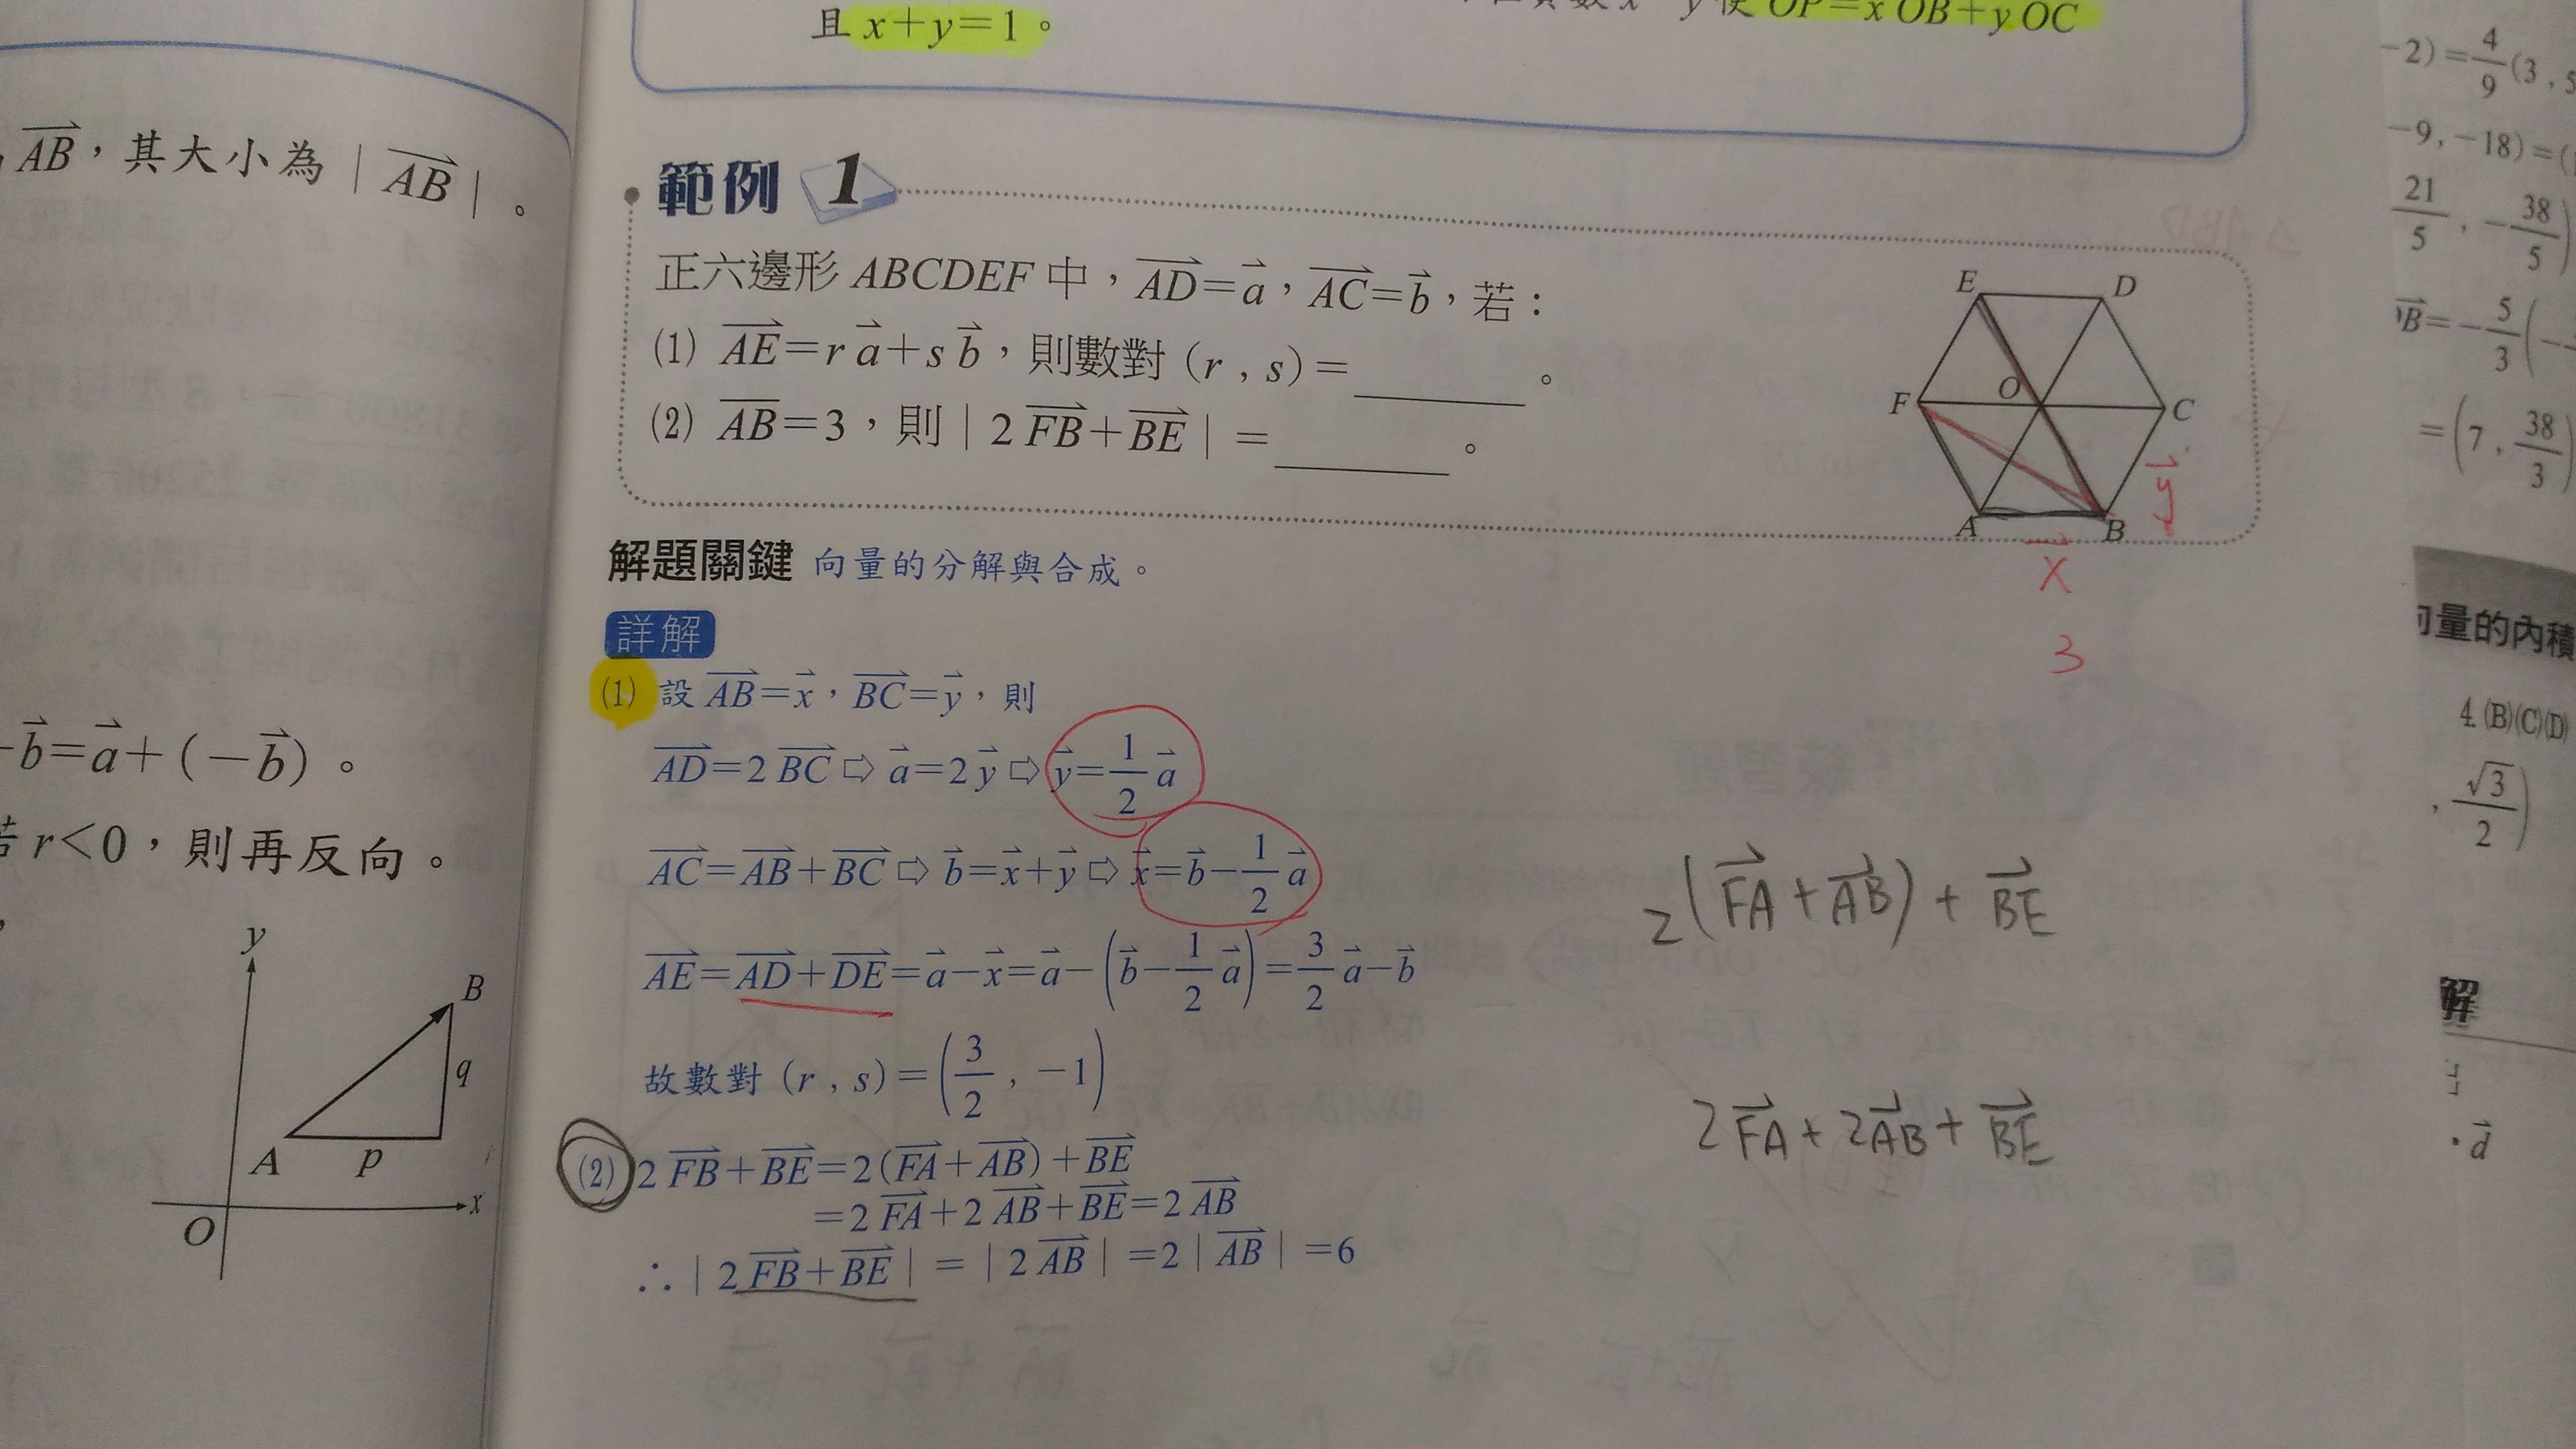 AB，其大小為 | AB | 。
-b=a+(-b)。
若 r<0，則再反向。
y
B
q
A
p
x
O
且 x+y=1。
OP=x OB+y OC
範例 1
正六邊形 ABCDEF 中，AD=a，AC=b，若：
(1) AE=r a+s b，則數對 (r , s)=______。
(2) AB=3，則 | 2 FB+BE | =______。
E
D
O
F
C
A
B
y
x
3
解題關鍵 向量的分解與合成。
詳解
(1) 設 AB=x，BC=y，則
AD=2 BC ⇨ a=2 y ⇨ y=1/2 a
AC=AB+BC ⇨ b=x+y ⇨ x=b-1/2 a
AE=AD+DE=a-x=a-(b-1/2 a)=3/2 a-b
故數對 (r , s)=(3/2 , -1)
(2) 2 FB+BE=2(FA+AB)+BE
=2 FA+2 AB+BE=2 AB
∴ | 2 FB+BE | = | 2 AB | =2 | AB | =6
2(FA+AB)+BE
2FA+2AB+BE
-2)=4/9(3 , 5
-9 , -18)=(
21/5 , -38/5)
B=-5/3(-
=(7 , 38/3)
量的內積
4. (B)(C)(D)
, √3/2)
解
• d